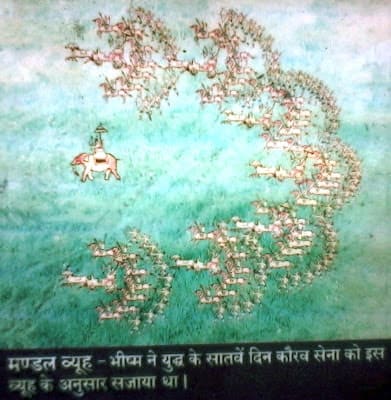 मण्डल व्यूह – भीष्म ने युद्ध के सातवें दिन कौरव सेना को इस
व्यूह के अनुसार सजाया था।